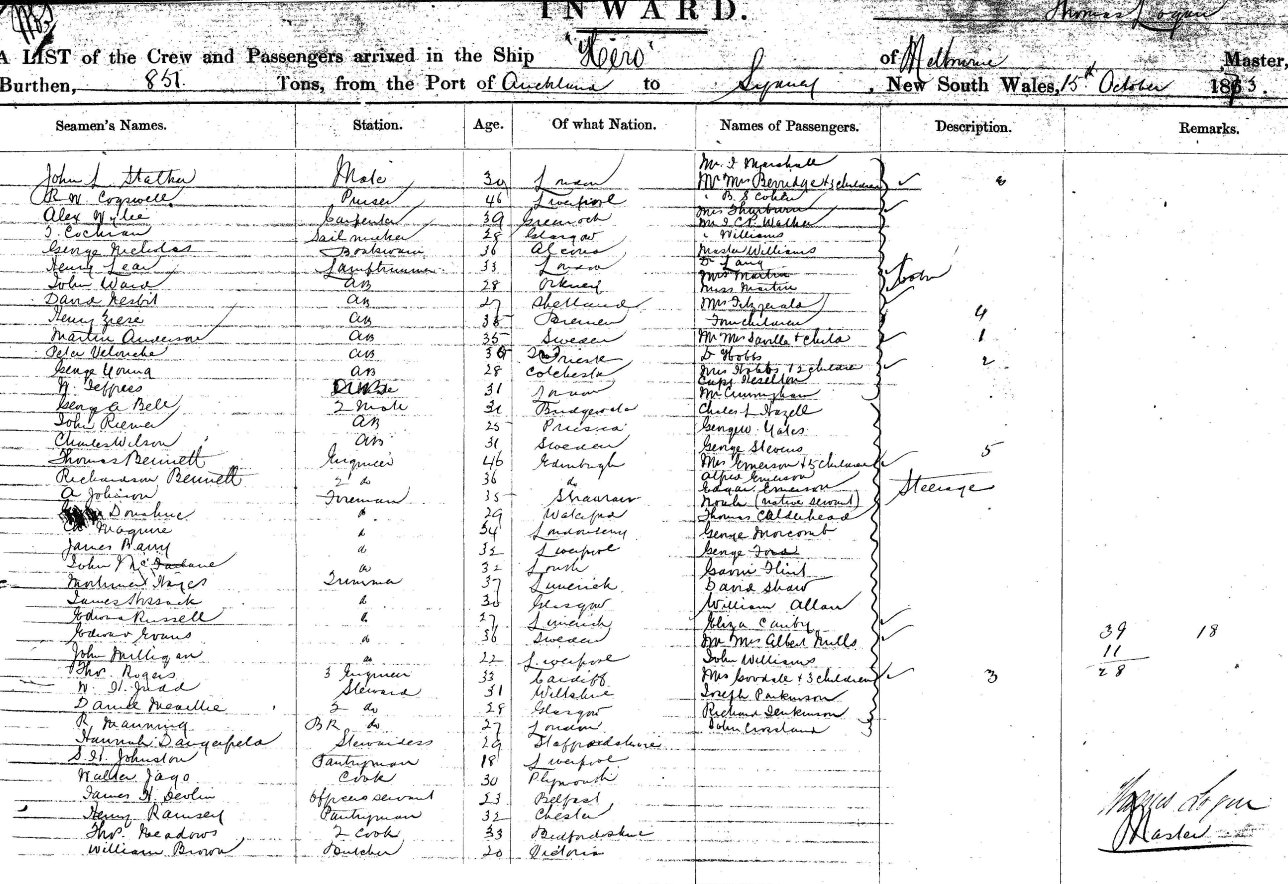 INWARD.
Thomas Logan
A LIST of the Crew and Passengers arrived in the Ship "Hero" of Melbourne Master,
Burthen, 851 Tons, from the Port of Auckland to Sydney, New South Wales, 15th October 1863.
Seamen's Names. Station. Age. Of what Nation. Names of Passengers. Description. Remarks.
Mr. J Marshall
John L Stather Mate 30 London Mr Mrs Berridge + 3 children
R W Cogswell Purser 46 Liverpool B. S Cohen
Alex Wylie Carpenter 39 Greenock Mrs Thurburn
Mr J. C. P. Walker
T Cochran Sail maker 28 Glasgow Williams
George Nicholas Boatswain 36 Master Williams
Henry Lear Lamptrimmer 33 London Dr Lang
Mrs Martin
John Ward AB 28 Orkney Miss Martin
David Nesbit AB 27 Shetland Mrs Fitzgerald
Henry AB 38 Bremen Four children 4
Martin Anderson AB 35 Sweden Mr Mrs Saville + child 1
Peter AB 30 Trieste Dr Hobbs
George Young AB 28 Colchester Mrs Hobbs + 2 children 2
Capt Heselton
W. Jeffress 31 London Mr Cunningham
George A Bell 2 Mate 31 Bridgewater Charles L Hazell
John Riemer AB 25 Prussia George W. Yates
Charles Wilson AB 31 Sweden George Stevens
Thomas Bennett Engineer 46 Edinburgh Mrs Emerson + 5 children 5
Richardson Bennett 2 do 36 do Alfred Emerson
Edgar Emerson
A Johnson Fireman 35 (native servant) Steerage
Donahue 29 Waterford Thomas Calderhead
Maguire 34 Londonderry George Morcomb
James Barry 32 Liverpool George Ford
John McFarlane 32 Louth Gavin Flint
Mortimer Hayes Trimmer 37 Limerick David Shaw
James 30 Glasgow William Allan
Edward Russell 27 Limerick Eliza Canty
Edward Evans 36 Sweden Mr Mrs Albert Mills 39 18
John Milligan 22 Liverpool John Williams 11
Thos. Rogers 3 Engineer 33 Cardiff Mrs Goodale + 3 children 3 28
W. H. Judd Steward 31 Wiltshire Joseph Parkinson
Daniel 2 do 28 Glasgow Richard Jenkinson
R. Manning BR do 27 London John Crosland
Hannah Dangerfield Stewardess 29 Staffordshire
S. H. Johnston Pantryman 18 Liverpool
Walter Jago Cook 30 Plymouth
James H Devlin Officers servant 23 Belfast
Henry Ramsey Pantryman 32 Chester
Thos. Meadows 2 Cook 33 Bedfordshire
William Brown Butcher 20 Victoria
Thomas Logan
Master